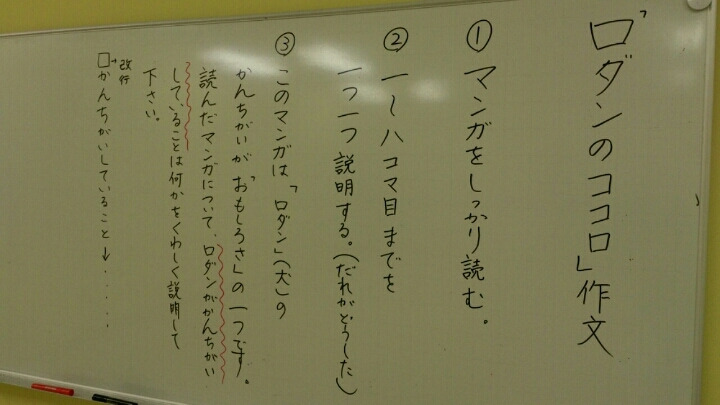 「ロダンのココロ」作文
① マンガをしっかり読む。
② 一〜八コマ目までを
一つ一つ説明する。(だれがどうした)
③ このマンガは、「ロダン」(犬)の
かんちがいが「おもしろさ」の一つです。
読んだマンガについて、ロダンがかんちがい
していることは何かをくわしく説明して
下さい。
改行
□かんちがいしていること→・・・・・